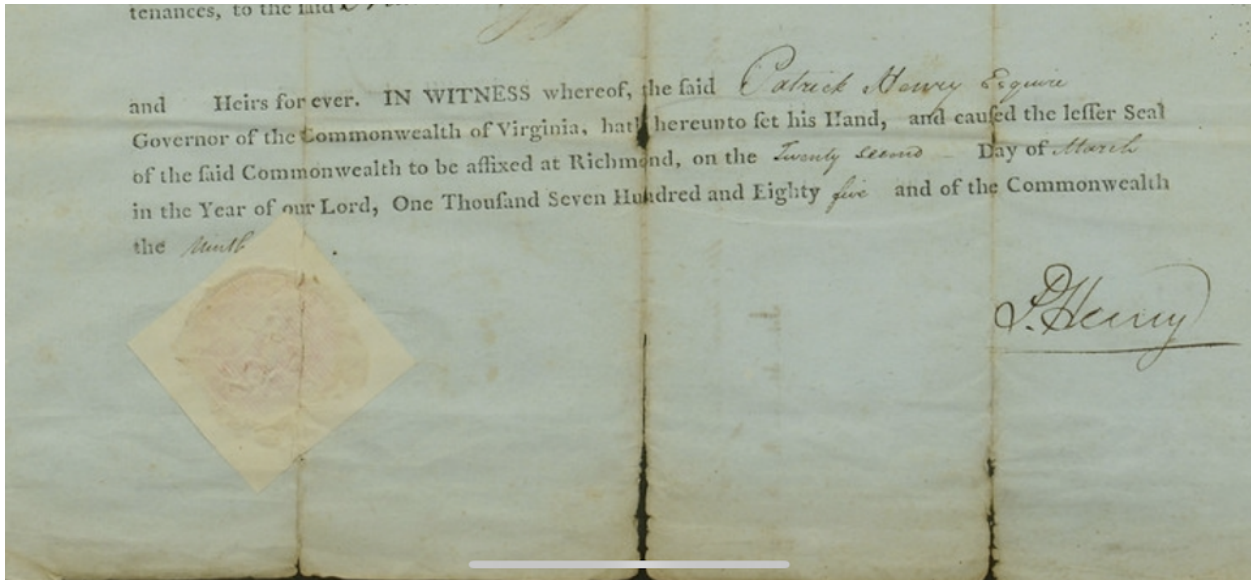 tenances, to the ſaid
and Heirs for ever. IN WITNESS whereof, the ſaid Patrick Henry Esquire
Governor of the Commonwealth of Virginia, hath hereunto ſet his Hand, and cauſed the leſſer Seal
of the ſaid Commonwealth to be affixed at Richmond, on the Twenty second Day of March
in the Year of our Lord, One Thouſand Seven Hundred and Eighty five and of the Commonwealth
the Ninth .
P. Henry